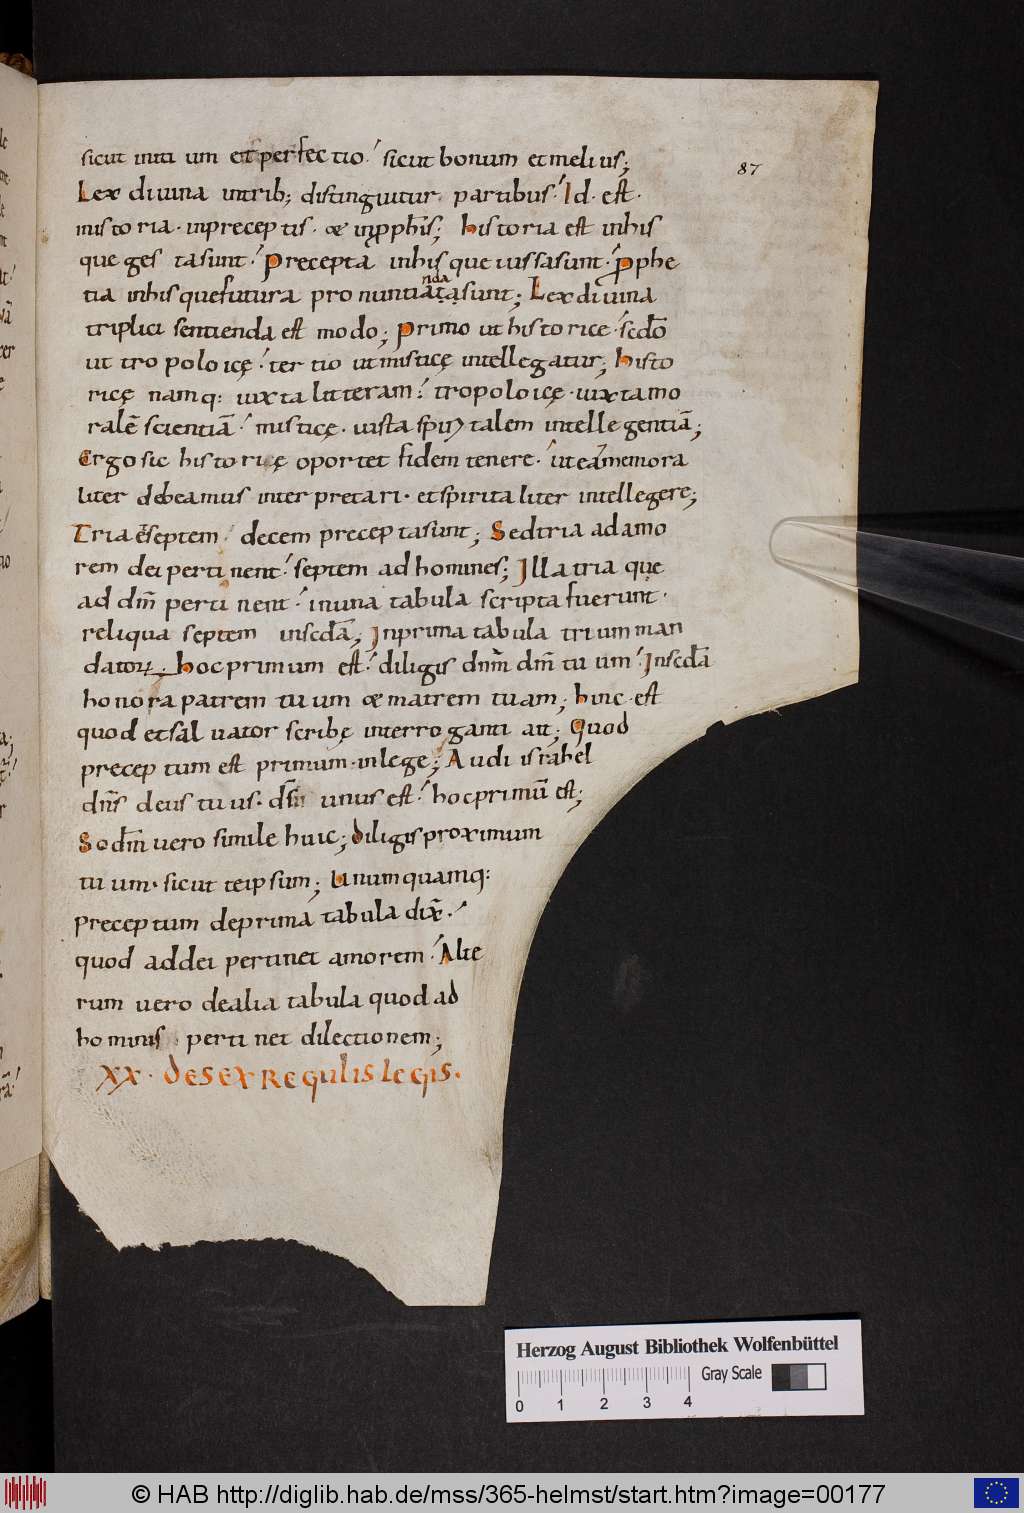 sicut initi um et perfectio. sicut bonum et melius;
87
Lex diuina intrib; distinguitur partibus. Id. est.
inistoria. inpreceptis. & inpphis; Historia est inhis
que ges tasunt. Precepta inhis que iussasunt. Pphe
tia inhis quefutura pronuntiatasunt; Lex diuina
nda
triplici sentienda est modo; Primo ut historice. scdo
ut tropoloicę. tertio ut misticę intellegatur; Histo
ricę namq: iuxta litteram. tropoloicę. iuxtamo
ralē scientiā. misticę. iusta spiritalem intellegentiā;
Ergo sic historicę oportet fidem tenere. ut eā memora
liter debeamus interpretari. et spiritaliter intellegere;
Tria & septem decem preceptasunt; Sedtria adamo
rem dei pertinent. septem ad homines; Illa tria que
ad dm̄ pertinent. inuna tabula scripta fuerunt.
reliqua septem inscdā; Inprima tabula trium man
datorꝝ. hoc primum est. diligis dnm̄ dm̄ tuum. Inscdā
honora patrem tuum & matrem tuam; huic est
quod et saluator scribę interroganti ait; Quod
preceptum est primum. inlege; Audi israhel
dn̄s deus tuus. ds̄ unus est. hocprimū est;
Scdm̄ uero simile huic; diligis proximum
tuum. sicut teipsum; Unumquamq:
preceptum deprima tabula dix̄.
quod addei pertinet amorem. Alte
rum uero dealia tabula quod ad
hominis pertinet dilectionem;
XX. DE SEX REGULIS LEGIS.
Herzog August Bibliothek Wolfenbüttel
Gray Scale
0 1 2 3 4
© HAB http://diglib.hab.de/mss/365-helmst/start.htm?image=00177